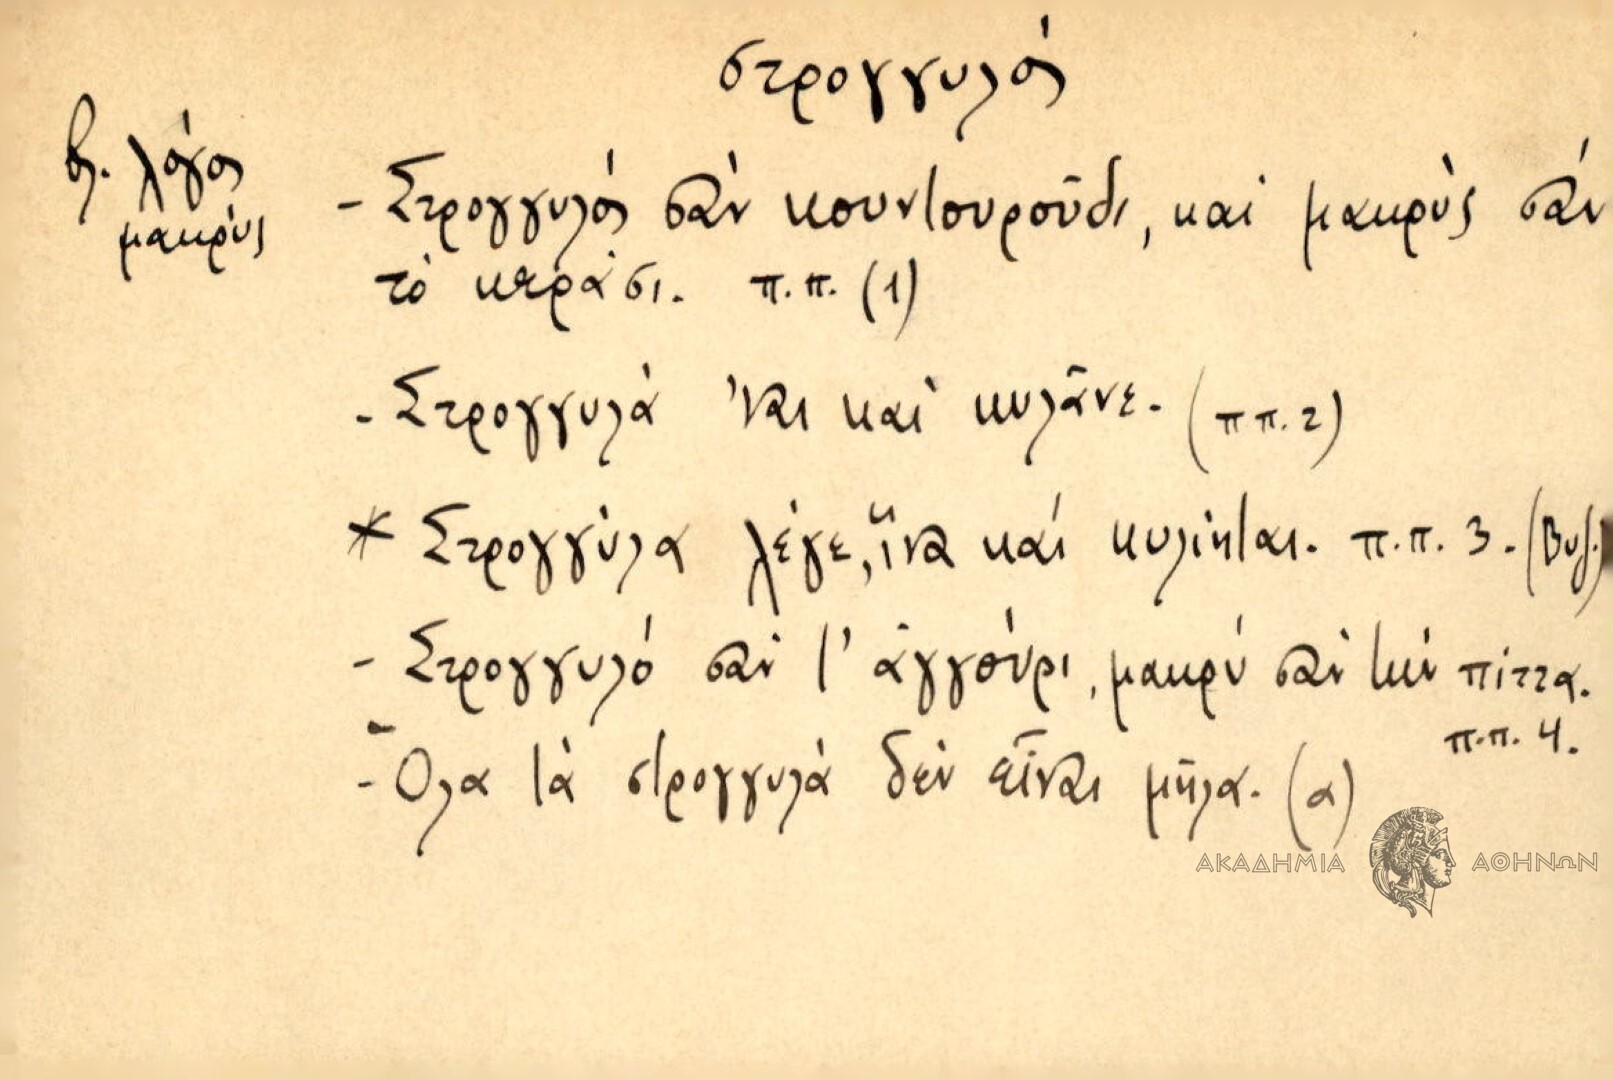 στρογγυλός
βλ. λόγος
μακρὺς
- Στρογγυλός σὰν κουντουροῦδι, καὶ μακρὺς σὰν
τὸ κεράσι. π.π. (1)
- Στρογγυλὰ 'ναι καὶ κυλᾶνε. (π π. 2)
* Στρογγύλα λέγε, ἵνα καὶ κυλίηται. π.π. 3. (Βυζ.)
- Στρογγυλό σὰν τ' ἀγγούρι, μακρύ σὰν τὴν πίττα.
π.π. 4.
- Ὅλα τὰ στρογγυλὰ δὲν εἶναι μῆλα. (α)
ΑΚΑΔΗΜΙΑ ΑΘΗΝΩΝ